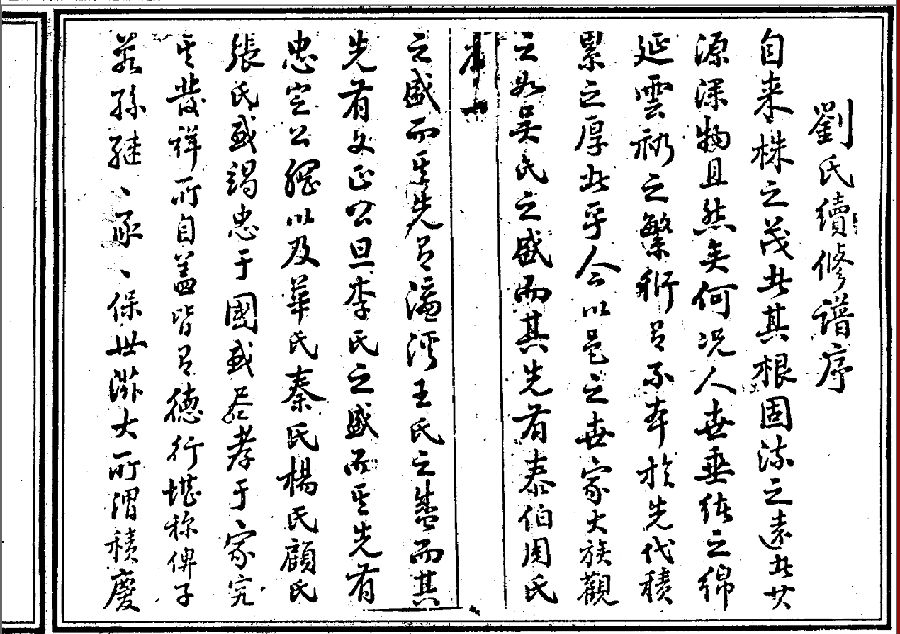 劉氏續修譜序
自来株之茂者其根固流之遠者其
源深物且然矣何况人世垂統之綿
延雲礽之繁衍有不本於先代積
累之厚者乎今以邑之世家大族觀
之如吴氏之盛而其先有泰伯周氏
之盛而其先有濂溪王氏之盛而其
先有文正公旦李氏之盛而其先有
忠定公綱以及華氏秦氏楊氏顧氏
張氏或竭忠于國或居孝于家究
其發祥所自盖皆有德行堪称俾子
若孫继、承、保世滋大所謂積慶